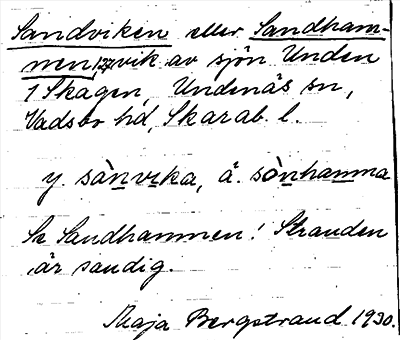 Sandviken eller Sandham-
men, vik av sjön Unden
i Skagen, Undenäs sn,
Vadsbo hd, Skarab. l.
y. sànvika, ä. sònhamma
Se Sandhammen! Stranden
är sandig.
Maja Bergstrand 1930.